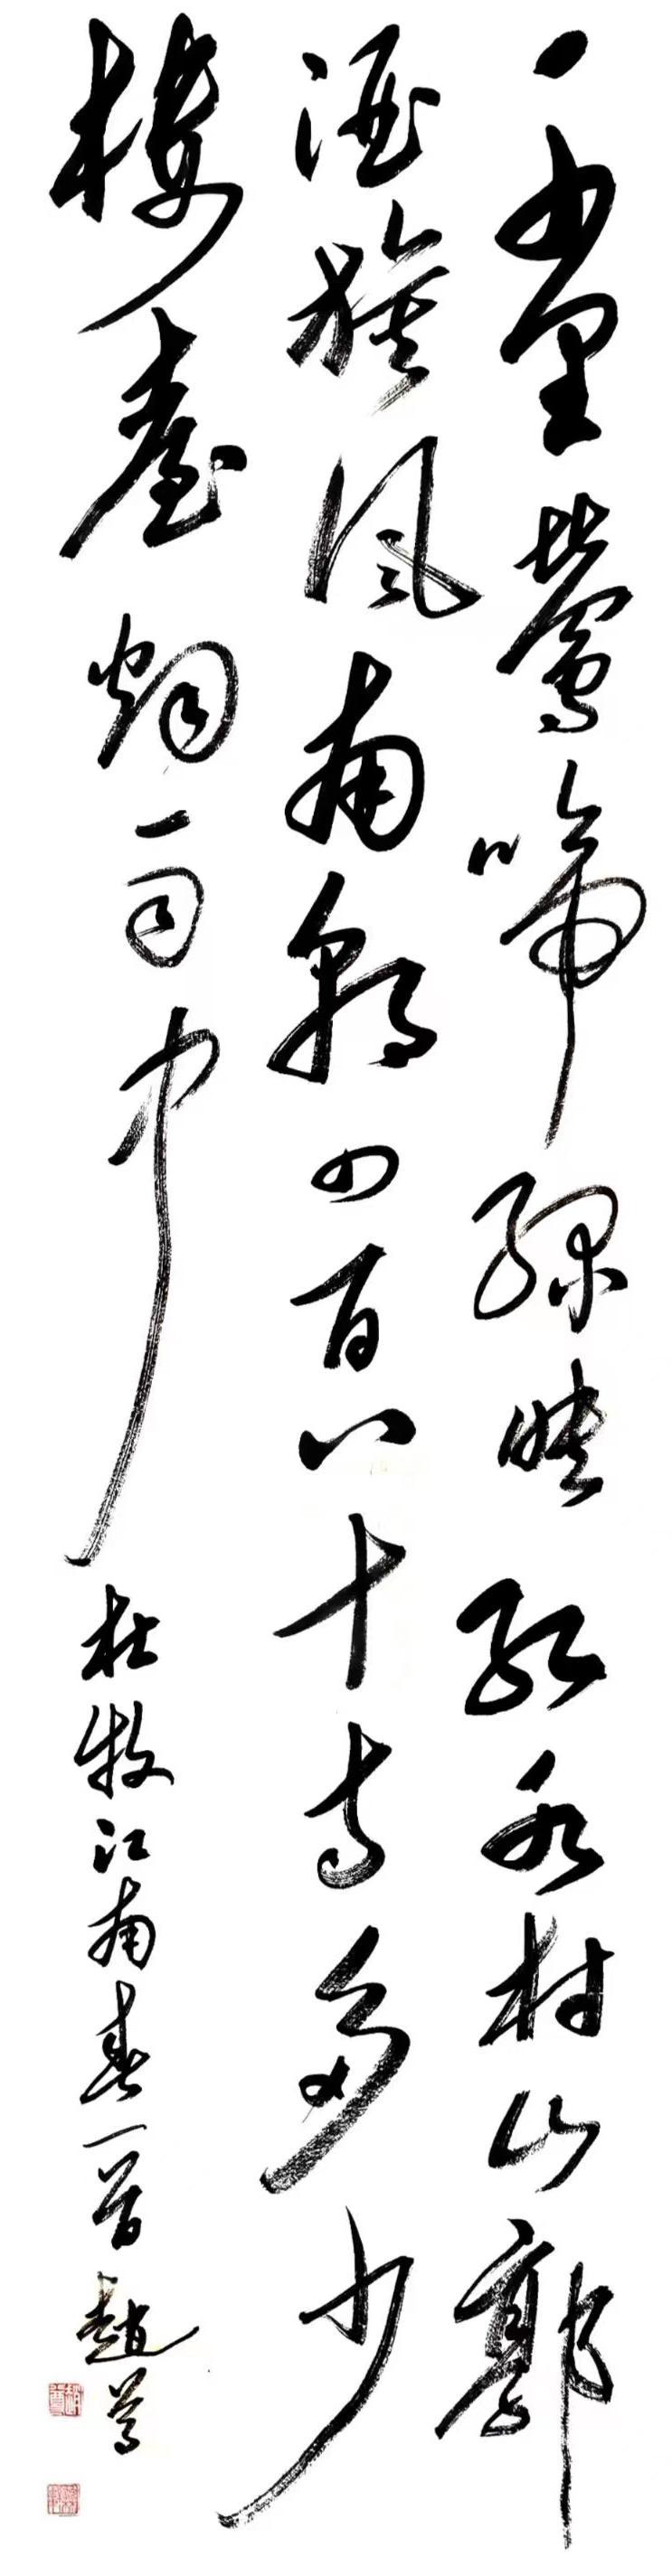 千里鶯啼綠映紅水村山郭
酒旗風南朝四百八十寺多少
樓臺烟雨中 杜牧江南春一首 趙